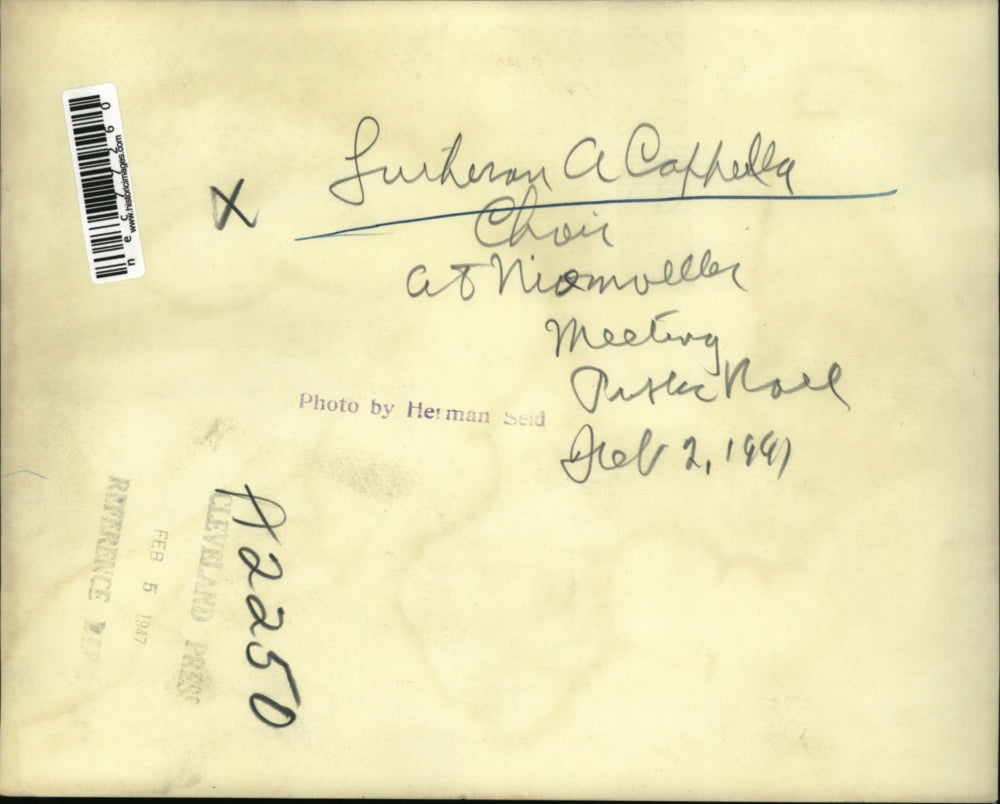 Lutheran A Cappella
Choir
at Niemoeller
Meeting
Public Hall
Feb 2, 1947
X
Photo by Herman Seid
A2250
CLEVELAND PRESS
FEB 5 1947
REFERENCE
www.historicimages.com